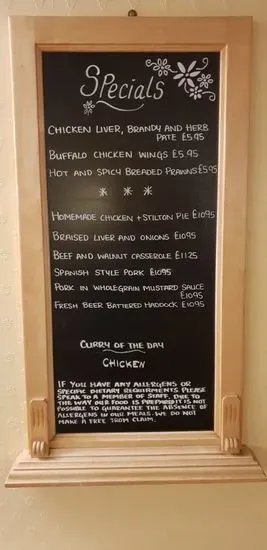 Specials
CHICKEN LIVER, BRANDY AND HERB
PATE £5.95
BUFFALO CHICKEN WINGS £5.95
HOT AND SPICY BREADED PRAWNS £5.95
* * *
HOMEMADE CHICKEN + STILTON PIE £10.95
BRAISED LIVER AND ONIONS £10.95
BEEF AND WALNUT CASSEROLE £11.25
SPANISH STYLE PORK £10.95
PORK IN WHOLEGRAIN MUSTARD SAUCE
£10.95
FRESH BEER BATTERED HADDOCK £10.95
CURRY OF THE DAY
CHICKEN
IF YOU HAVE ANY ALLERGENS OR
SPECIFIC DIETARY REQUIRMENTS PLEASE
SPEAK TO A MEMBER OF STAFF, DUE TO
THE WAY OUR FOOD IS PREPARED IT IS NOT
POSSIBLE TO GUARANTEE THE ABSENCE OF
ALLERGENS IN OUR MEALS. WE DO NOT
MAKE A FREE FROM CLAIM.